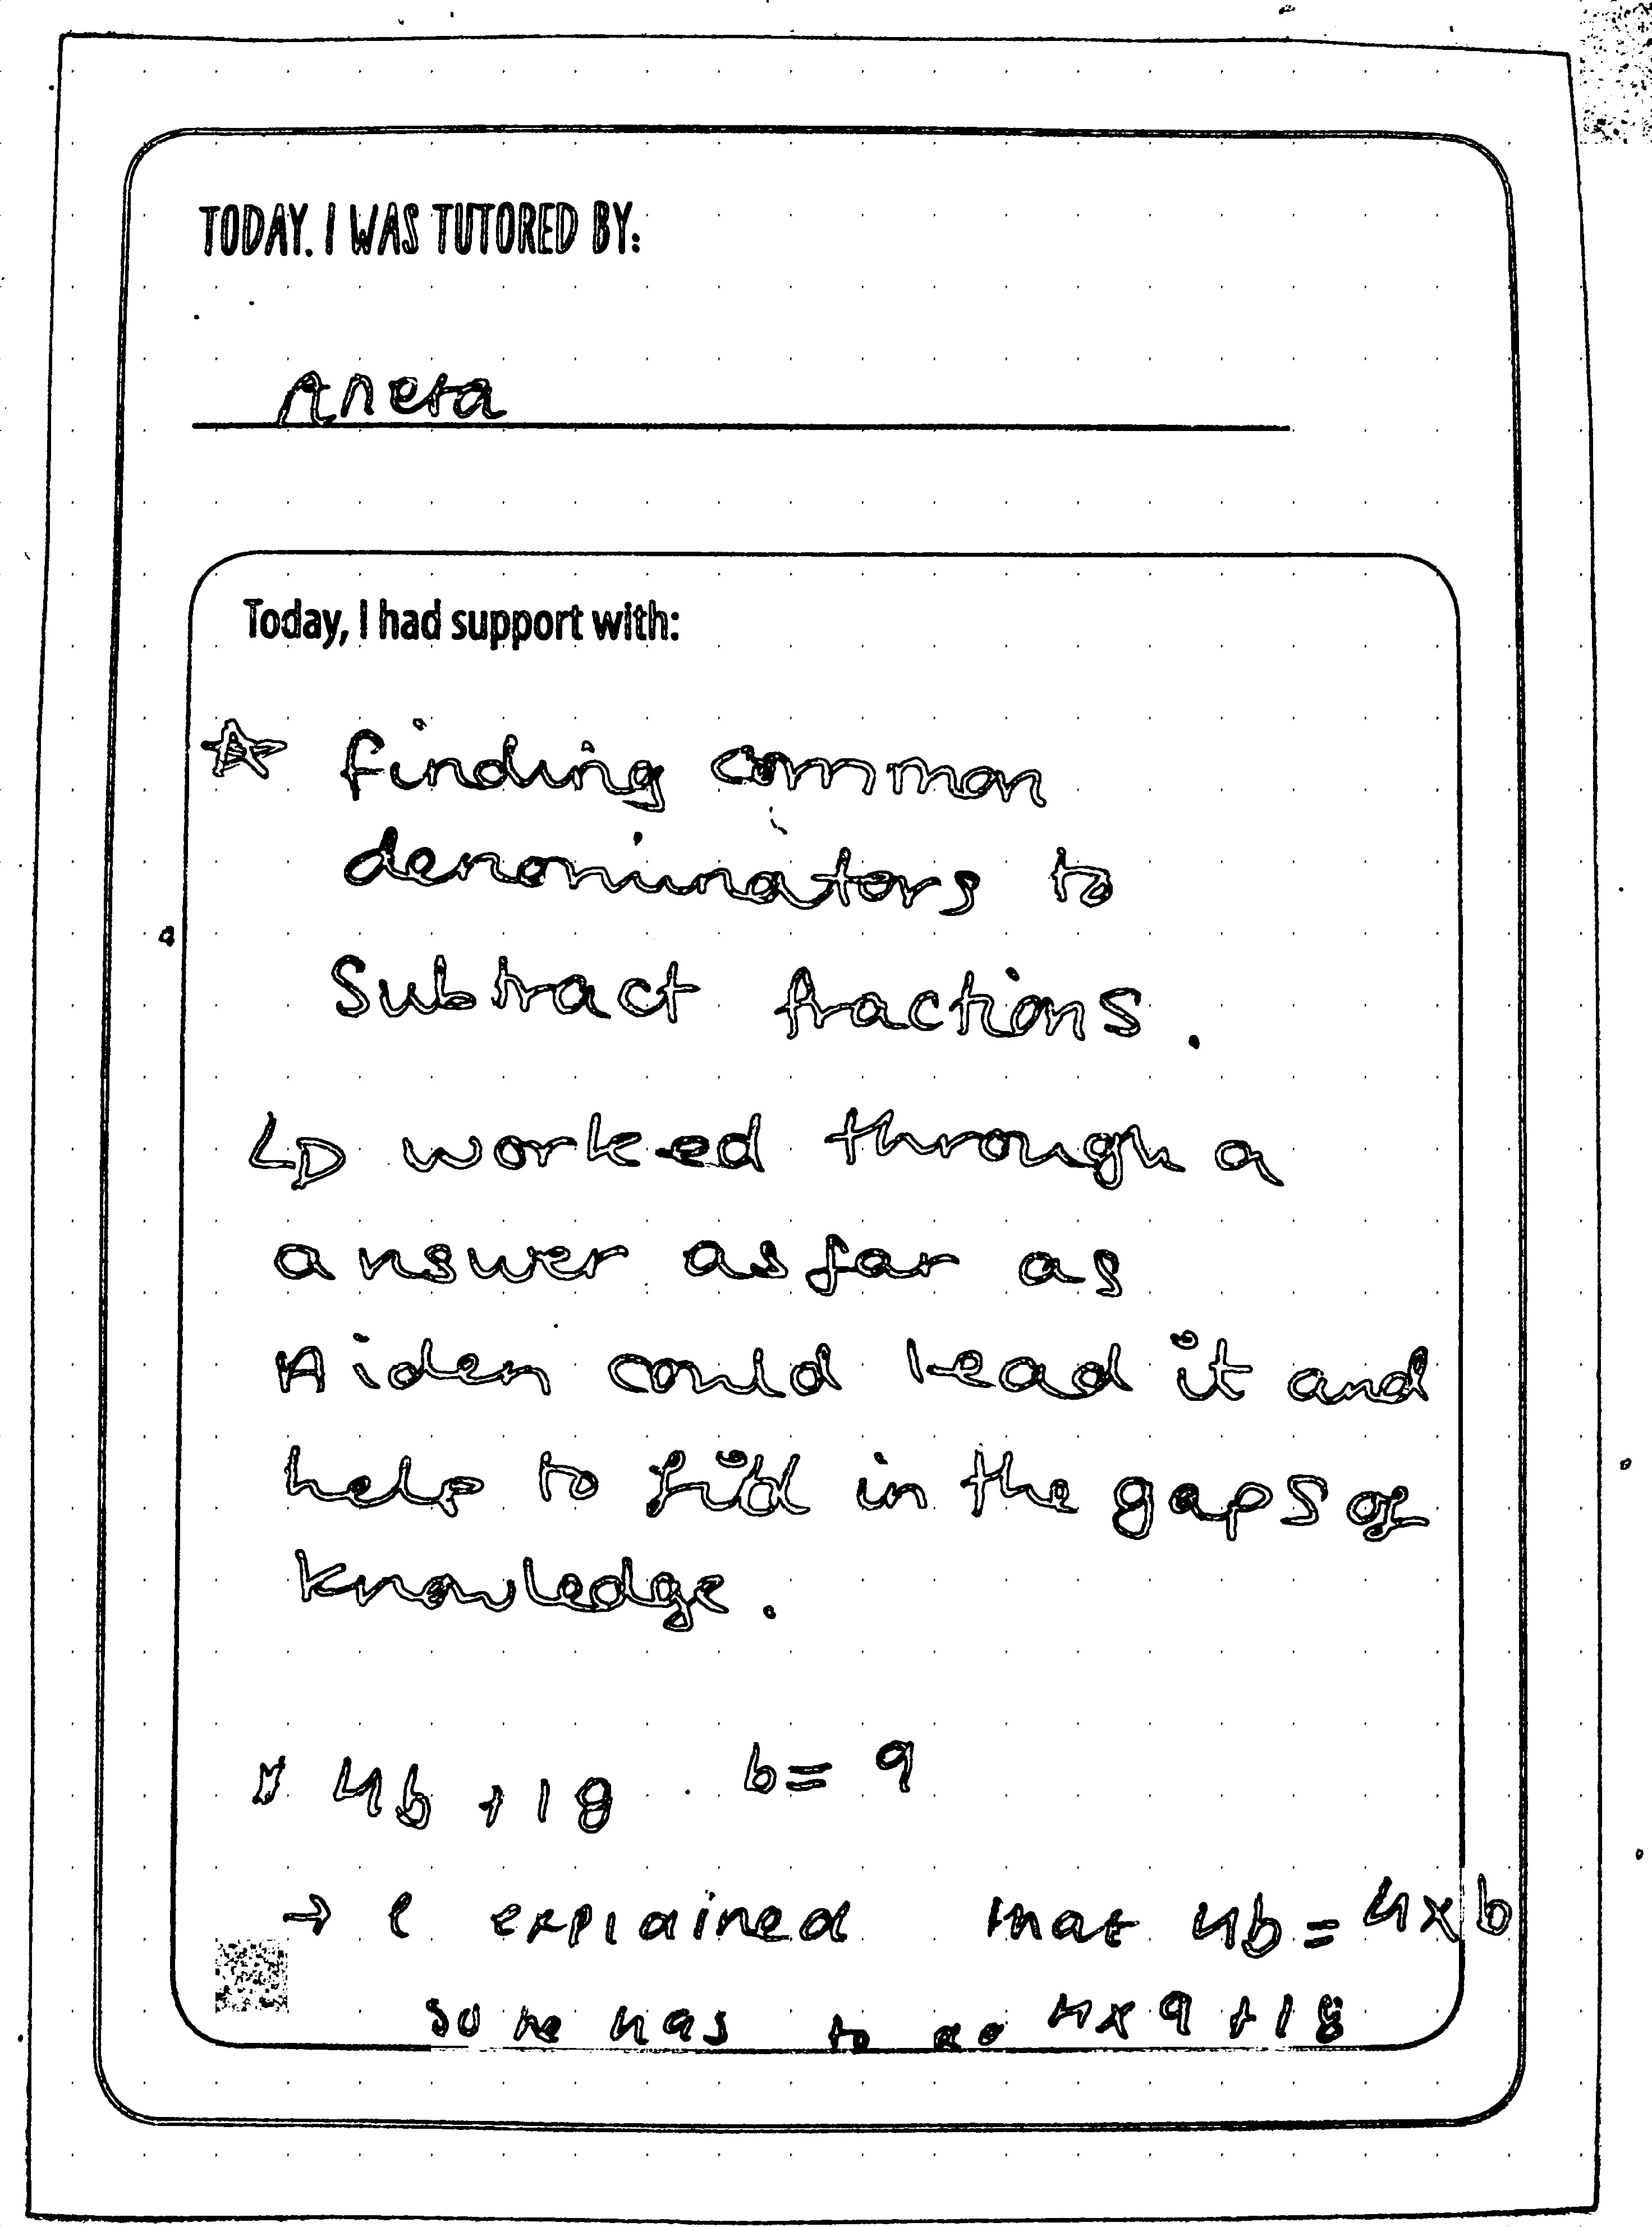 TODAY, I WAS TUTORED BY:
Aneta
Today, I had support with:
☆ finding common
denominators to
Subtract fractions.
↳ worked through a
answer as far as
Aiden could lead it and
help to find in the gaps of
knowledge.
* 4b + 18 b = 9
→ I explained that 4b = 4 x b
so he has to do 4 x 9 + 18